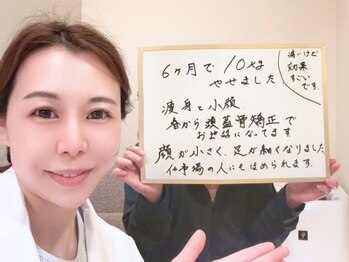 6ヶ月で10kg
やせました
痩身と小顔
今から頭蓋骨矯正で
お世話になってます
顔が小さく、足が細くなりました
仕事場の人にもほめられます。
痛いけど
効果
すごい
です。